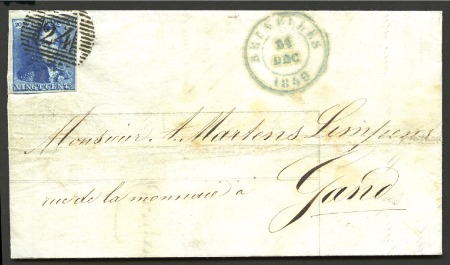 24
VINGT CENT
BRUXELLES
21
DEC
1849
Monsieur A. Martens Limpens
rue de la monnaie à
Gand